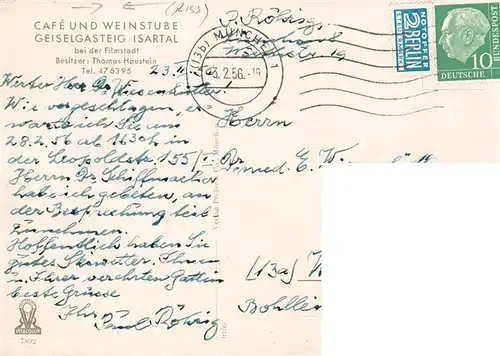 (R153)
CAFÉ UND WEINSTUBE
GEISELGASTEIG ISARTAL
bei der Filmstadt
Besitzer: Thomas Haustein
Tel. 476395
23. II. 56
Werter Herr Dr.
Wie vorgeschlagen, er
warte ich Sie am
28.2.56 ab 1630h in
der Leopoldstr. 155/I.
Herrn Dr. Schiffmacher
habe ich gebeten, an
der Besprechung teil
zunehmen.
Hoffentlich haben Sie
gutes Skiwetter. Ihnen
u. Ihrer verehrten Gattin
beste Grüsse
Ihr
Paul Röhrig
VITACOLOR
7892
P. Röhrig,
(13b) MÜNCHEN 1
3.2.56.-19
NOTOPFER
2 BERLIN
STEUERMARKE
DEUTSCHE BUNDESPOST
10
Herrn
Dr. med. E. W.
(13a)